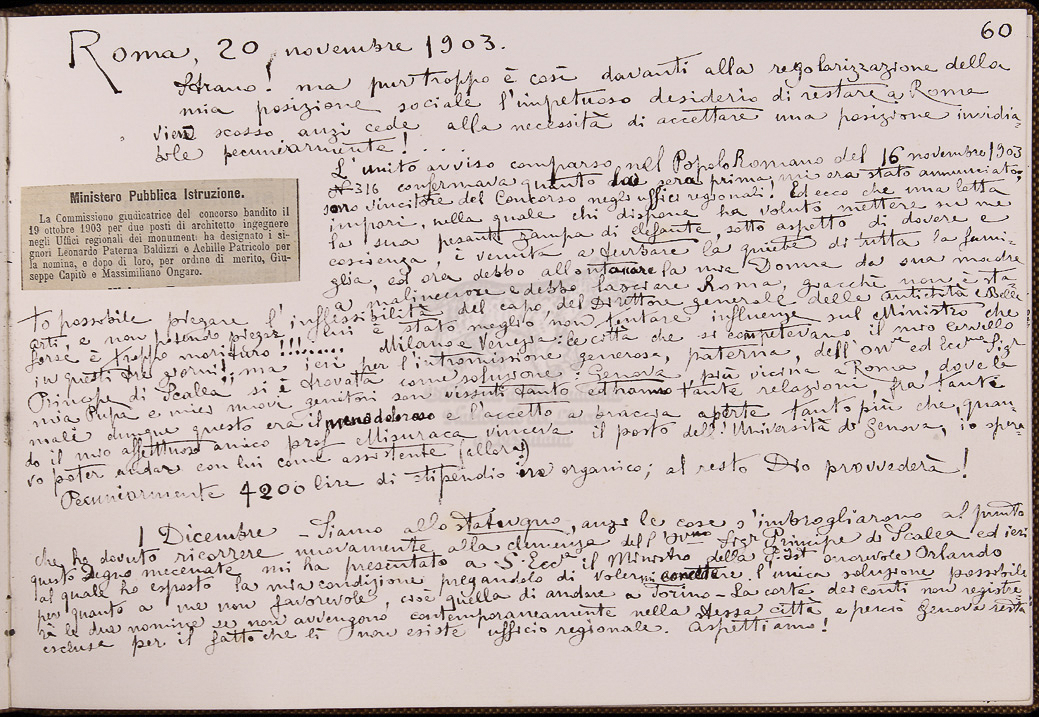 60
Roma, 20 novembre 1903.
Strano! ma purtroppo è così davanti alla regolarizzazione della
mia posizione sociale l'impetuoso desiderio di restare a Roma
viene scosso anzi cède alla necessità di accettare una posizione invidia-
bile pecuniariamente! . . . .
L'unito avviso comparso nel Popolo Romano del 16 novembre 1903
N 316 confermava quanto la sera prima, mi era stato annunciato;
sono vincitore del Concorso negli uffici regionali. Ed ecco che una lotta
impari, nella quale chi dispone ha voluto mettere su me
la sua pesante zampa di elefante, sotto aspetto di dovere e
coscienza, è venuta a turbare la quiete di tutta la fami-
glia, ed ora debbo allontanare la mia Donna da sua madre
a malincuore e debbo lasciare Roma, giacchè non è sta-
Ministero Pubblica Istruzione.
La Commissione giudicatrice del concorso bandito il
19 ottobre 1903 per due posti di architetto ingegnere
negli Uffici regionali dei monumenti ha designato i si-
gnori Leonardo Paterna Baldizzi e Achille Patricolo per
la nomina, e dopo di loro, per ordine di merito, Giu-
seppe Capitò e Massimiliano Ongaro.
to possibile piegare l'inflessibilità del capo, del Direttore generale delle antichità e Belle
arti, e non potendo piegar lui è stato meglio non tentare influenze sul Ministro che
forse è troppo morituro!!!...... Milano e Venezia: le città che si competevano il mio cervello
in questi tre giorni!; ma ieri per l'intromissione generosa, paterna, dell'On. ed Ecc. Sigr
Principe di Scalea si è trovata come soluzione: Genova più vicina a Roma, dove la
mia Pupa e miei nuovi genitori son vissuti tanto ed hanno tante relazioni, fra tanti
mali dunque questo era il meno doloroso e l'accetto a braccia aperte tanto più che, quan-
do il mio affettuoso amico prof Misuraca vinceva il posto dell'Università di Genova, io spera-
vo poter andar con lui come assistente (allora!)
Pecuniarmente 4200 lire di stipendio in organico; al resto Dio provvederà!
1 Dicembre - Siamo allo statu quo, anzi le cose s'imbrogliarono al punto
che ho dovuto ricorrere nuovamente alla clemenza dell' Sigr Principe di Scalea ed ieri
questo degno mecenate mi ha presentato a S. Ecc. il Ministro della P. Ist onorevole Orlando
al quale ho esposto la mia condizione pregandolo di volermi concedere l'unica soluzione possibile
per quanto a me non favorevole, cioè quella di andare a Torino - La corte dei conti non registre-
rà le due nomine se non avvengono contemporaneamente nella stessa città e perciò Genova resta
esclusa per il fatto che lì non esiste ufficio regionale. Aspettiamo!